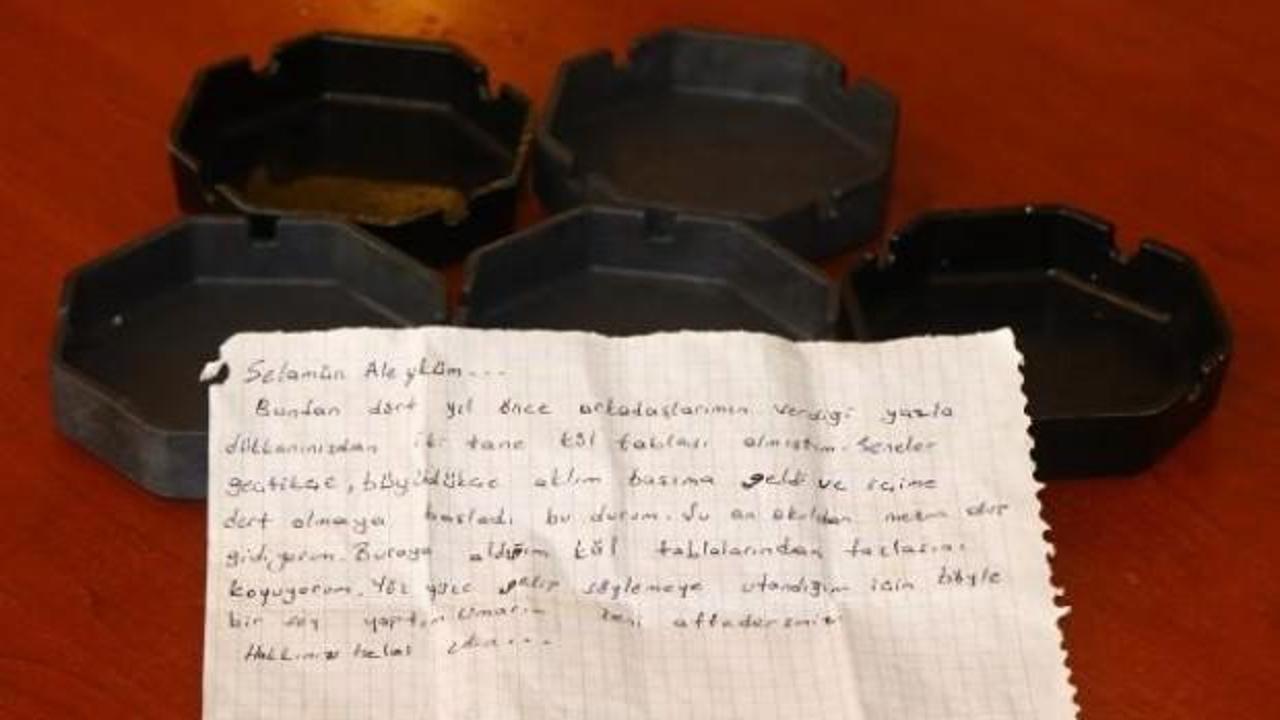 Selamün Aleyküm...
Bundan dört yıl önce arkadaşlarımın verdiği gazla
dükkanınızdan iki tane kül tablası almıştım. Seneler
geçtikçe, büyüdükçe aklım başıma geldi ve içime
dert olmaya başladı bu durum. Şu an okuldan mezun olup
gidiyorum. Buraya aldığım kül tablalarından fazlasını
koyuyorum. Yüz yüze gelip söylemeye utandığım için böyle
bir şey yaptım Umarım beni affedersiniz
Hakkınızı helal edin...